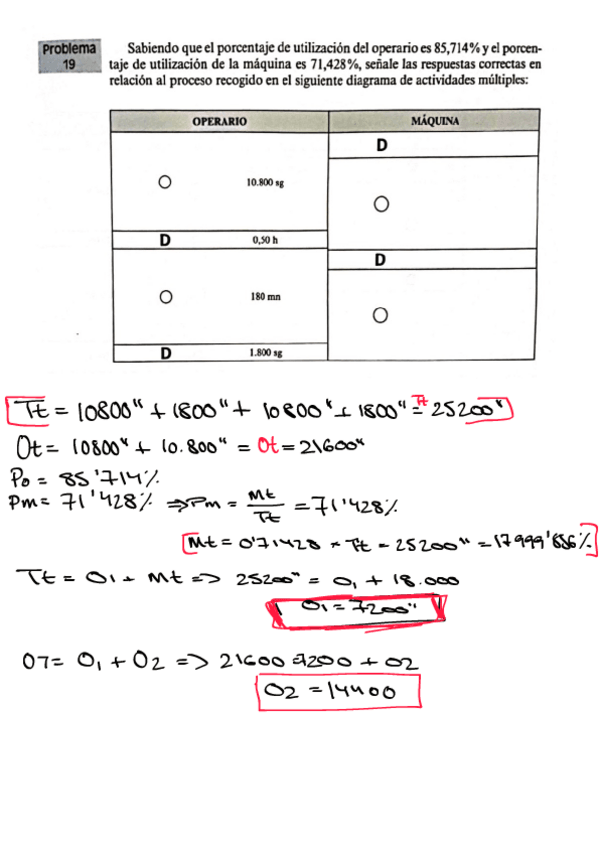 Problema 19
Sabiendo que el porcentaje de utilización del operario es 85,714% y el porcen-
taje de utilización de la máquina es 71,428%, señale las respuestas correctas en
relación al proceso recogido en el siguiente diagrama de actividades múltiples:
OPERARIO MÁQUINA
D
10.800 sg
D 0,50 h
D
180 mn
D 1.800 sg
Tt = 10800" + 1800" + 10800" + 1800" = Tt 25200"
Ot = 10800" + 10.800" = Ot = 21600"
Po = 85'714%
Pm = 71'428% => Pm = Mt / Tt = 71'428%
Mt = 0'71428 * Tt = 25200" = 17999'856%
Tt = O1 + Mt => 25200" = O1 + 18.000
O1 = 7200"
OT = O1 + O2 => 21600 = 7200 + O2
O2 = 14400